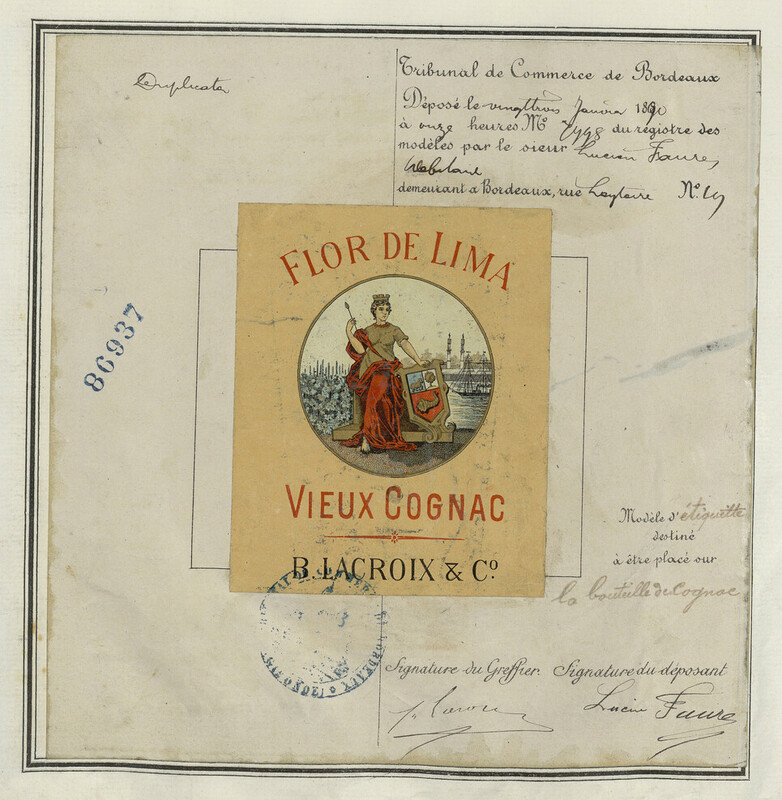 Duplicata
Tribunal de Commerce de Bordeaux
Déposé le vingt trois Janvier 1890
à onze heures. N° 7998 du registre des
modèles par le sieur Lucien Faure,
demeurant à Bordeaux, rue N°
FLOR DE LIMA
86937
VIEUX COGNAC
B. LACROIX & Co.
Modèle d'étiquette
destiné
à être placé sur
la bouteille de Cognac
BORDEAUX
(GIRONDE)
Signature du Greffier. Signature du déposant
Lucien Faure